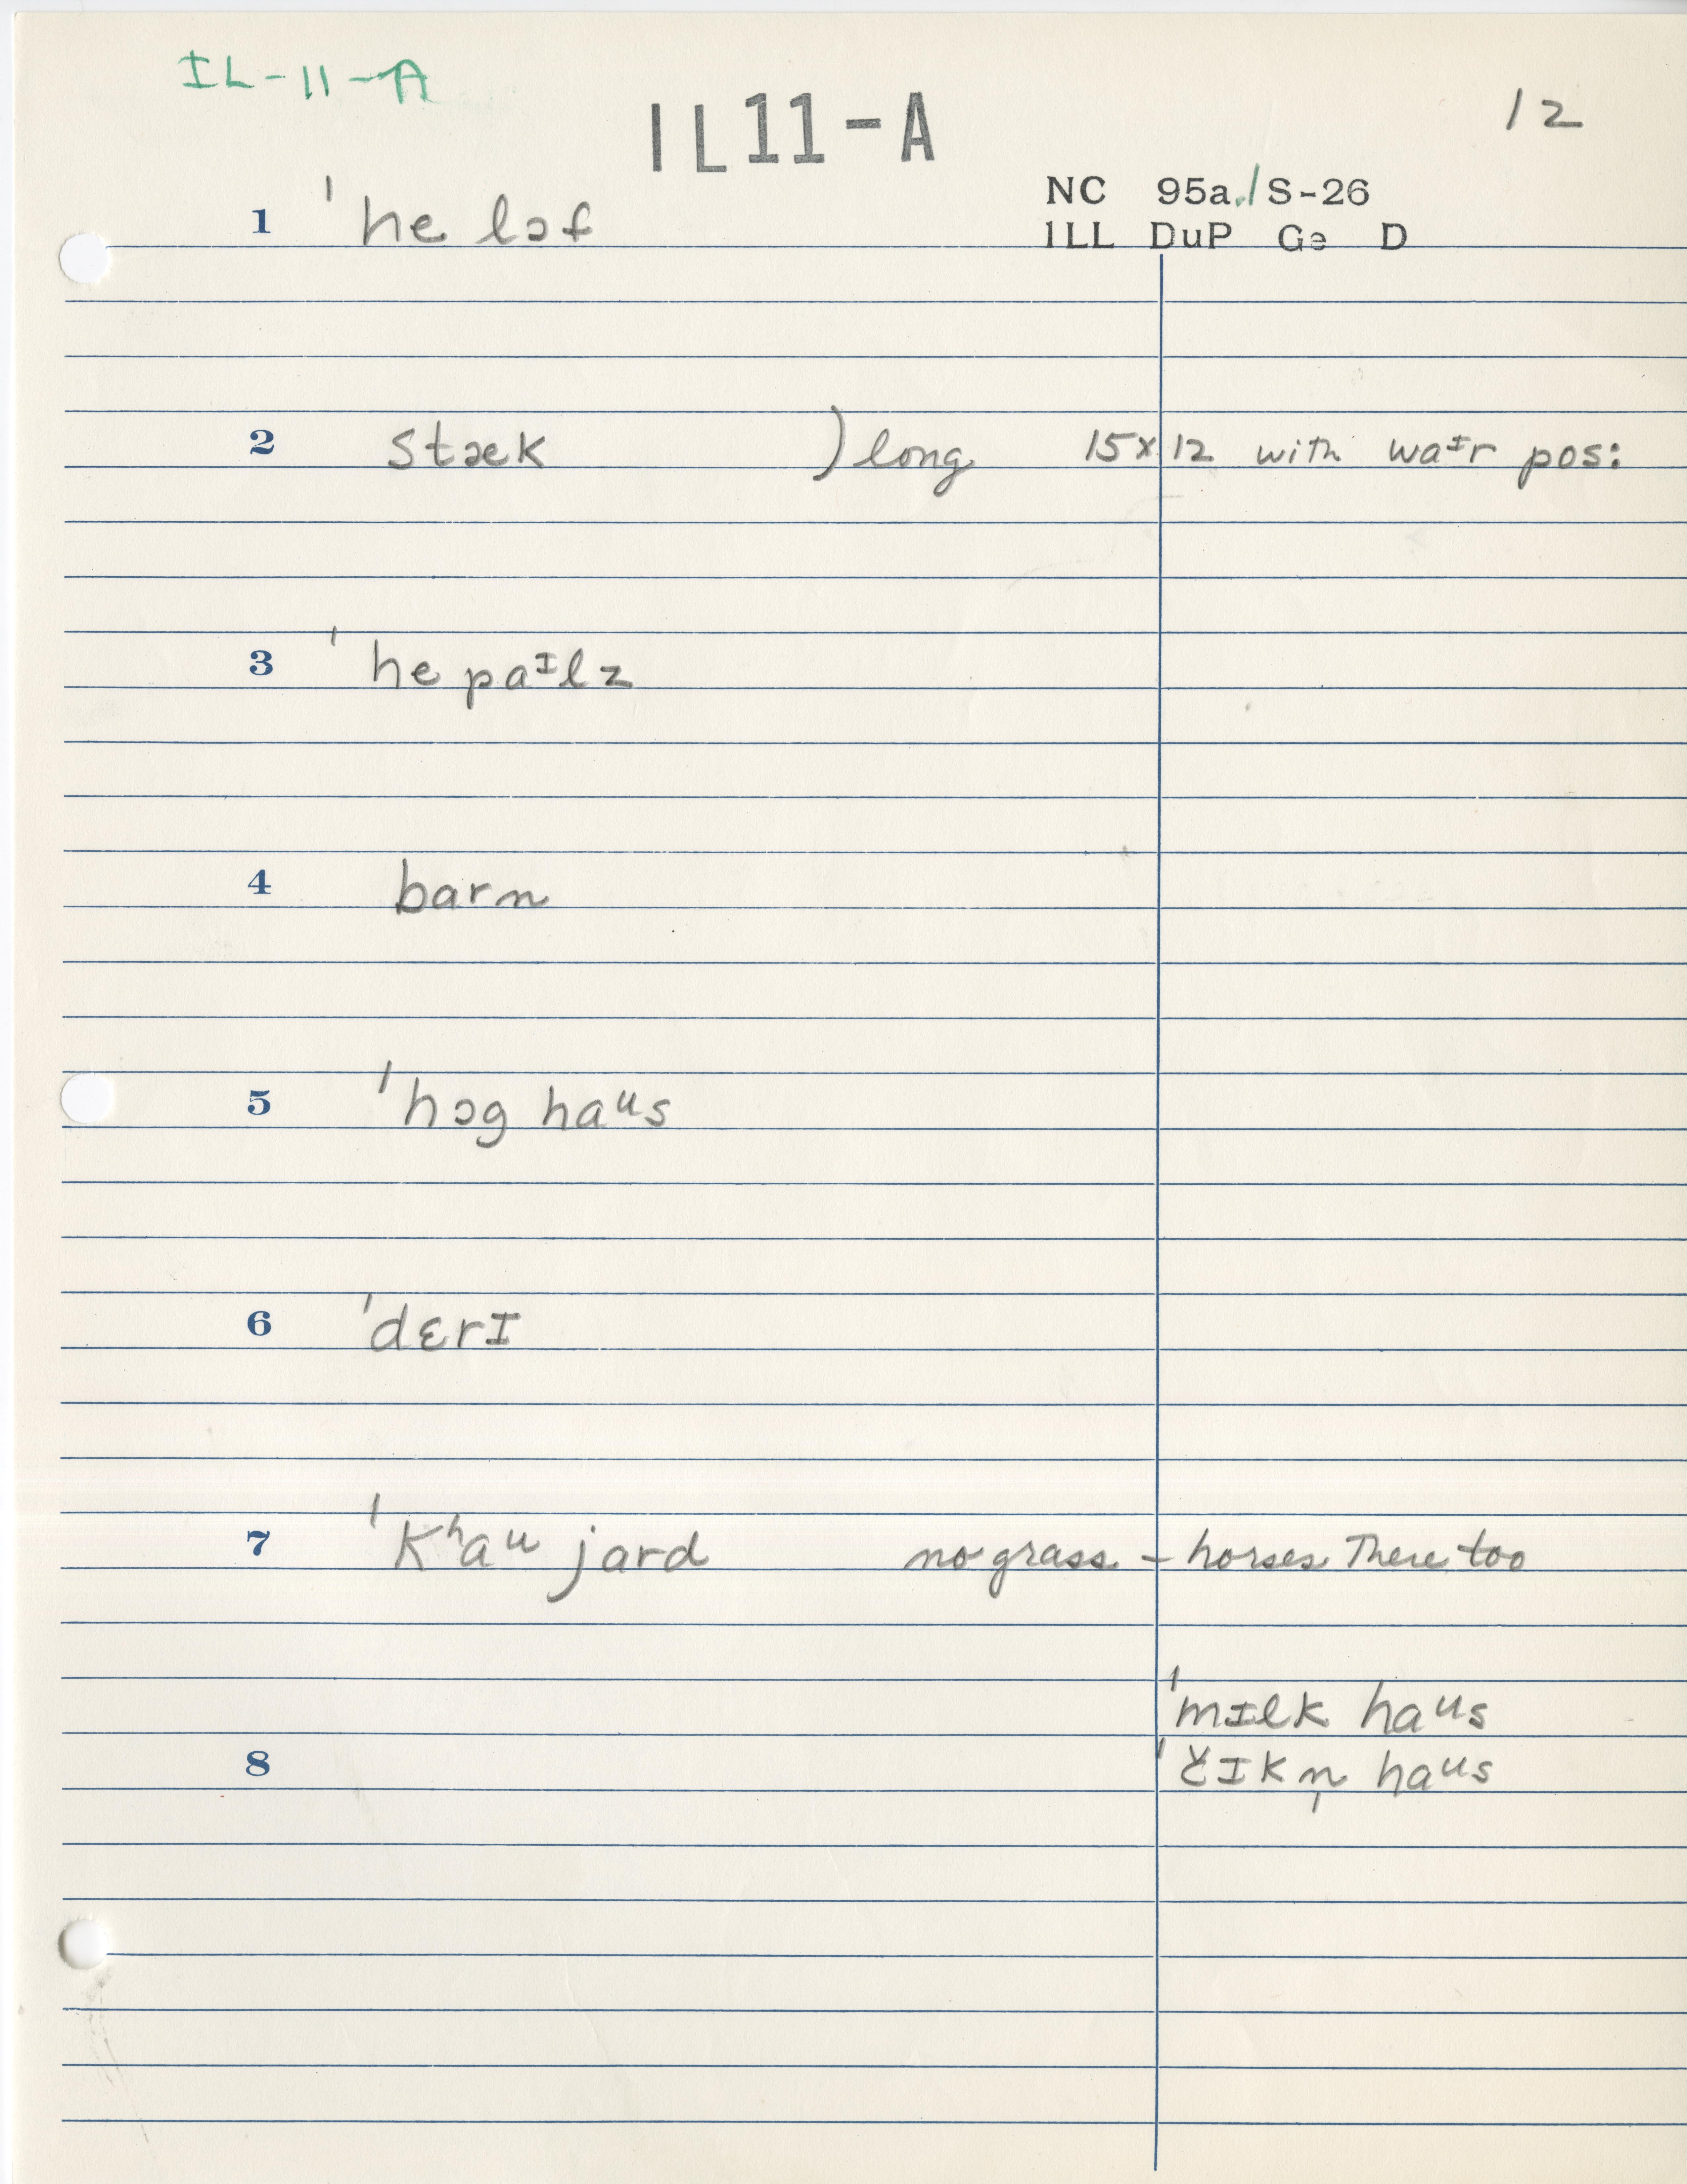 IL-11-A
IL11-A
12
NC 95a./S-26
ILL DuP Ge D
1 ˈhe lɔf
2 stæk ) long 15x12 with waᶦr pos:
3 ˈhe paᶦlz
4 barn
5 ˈhɔg haᵘs
6 ˈdɛrɪ
7 ˈkʰaᵘ jard no grass - horses There too
ˈmɪlk haᵘs
8 ˈčɪkn̩ haᵘs